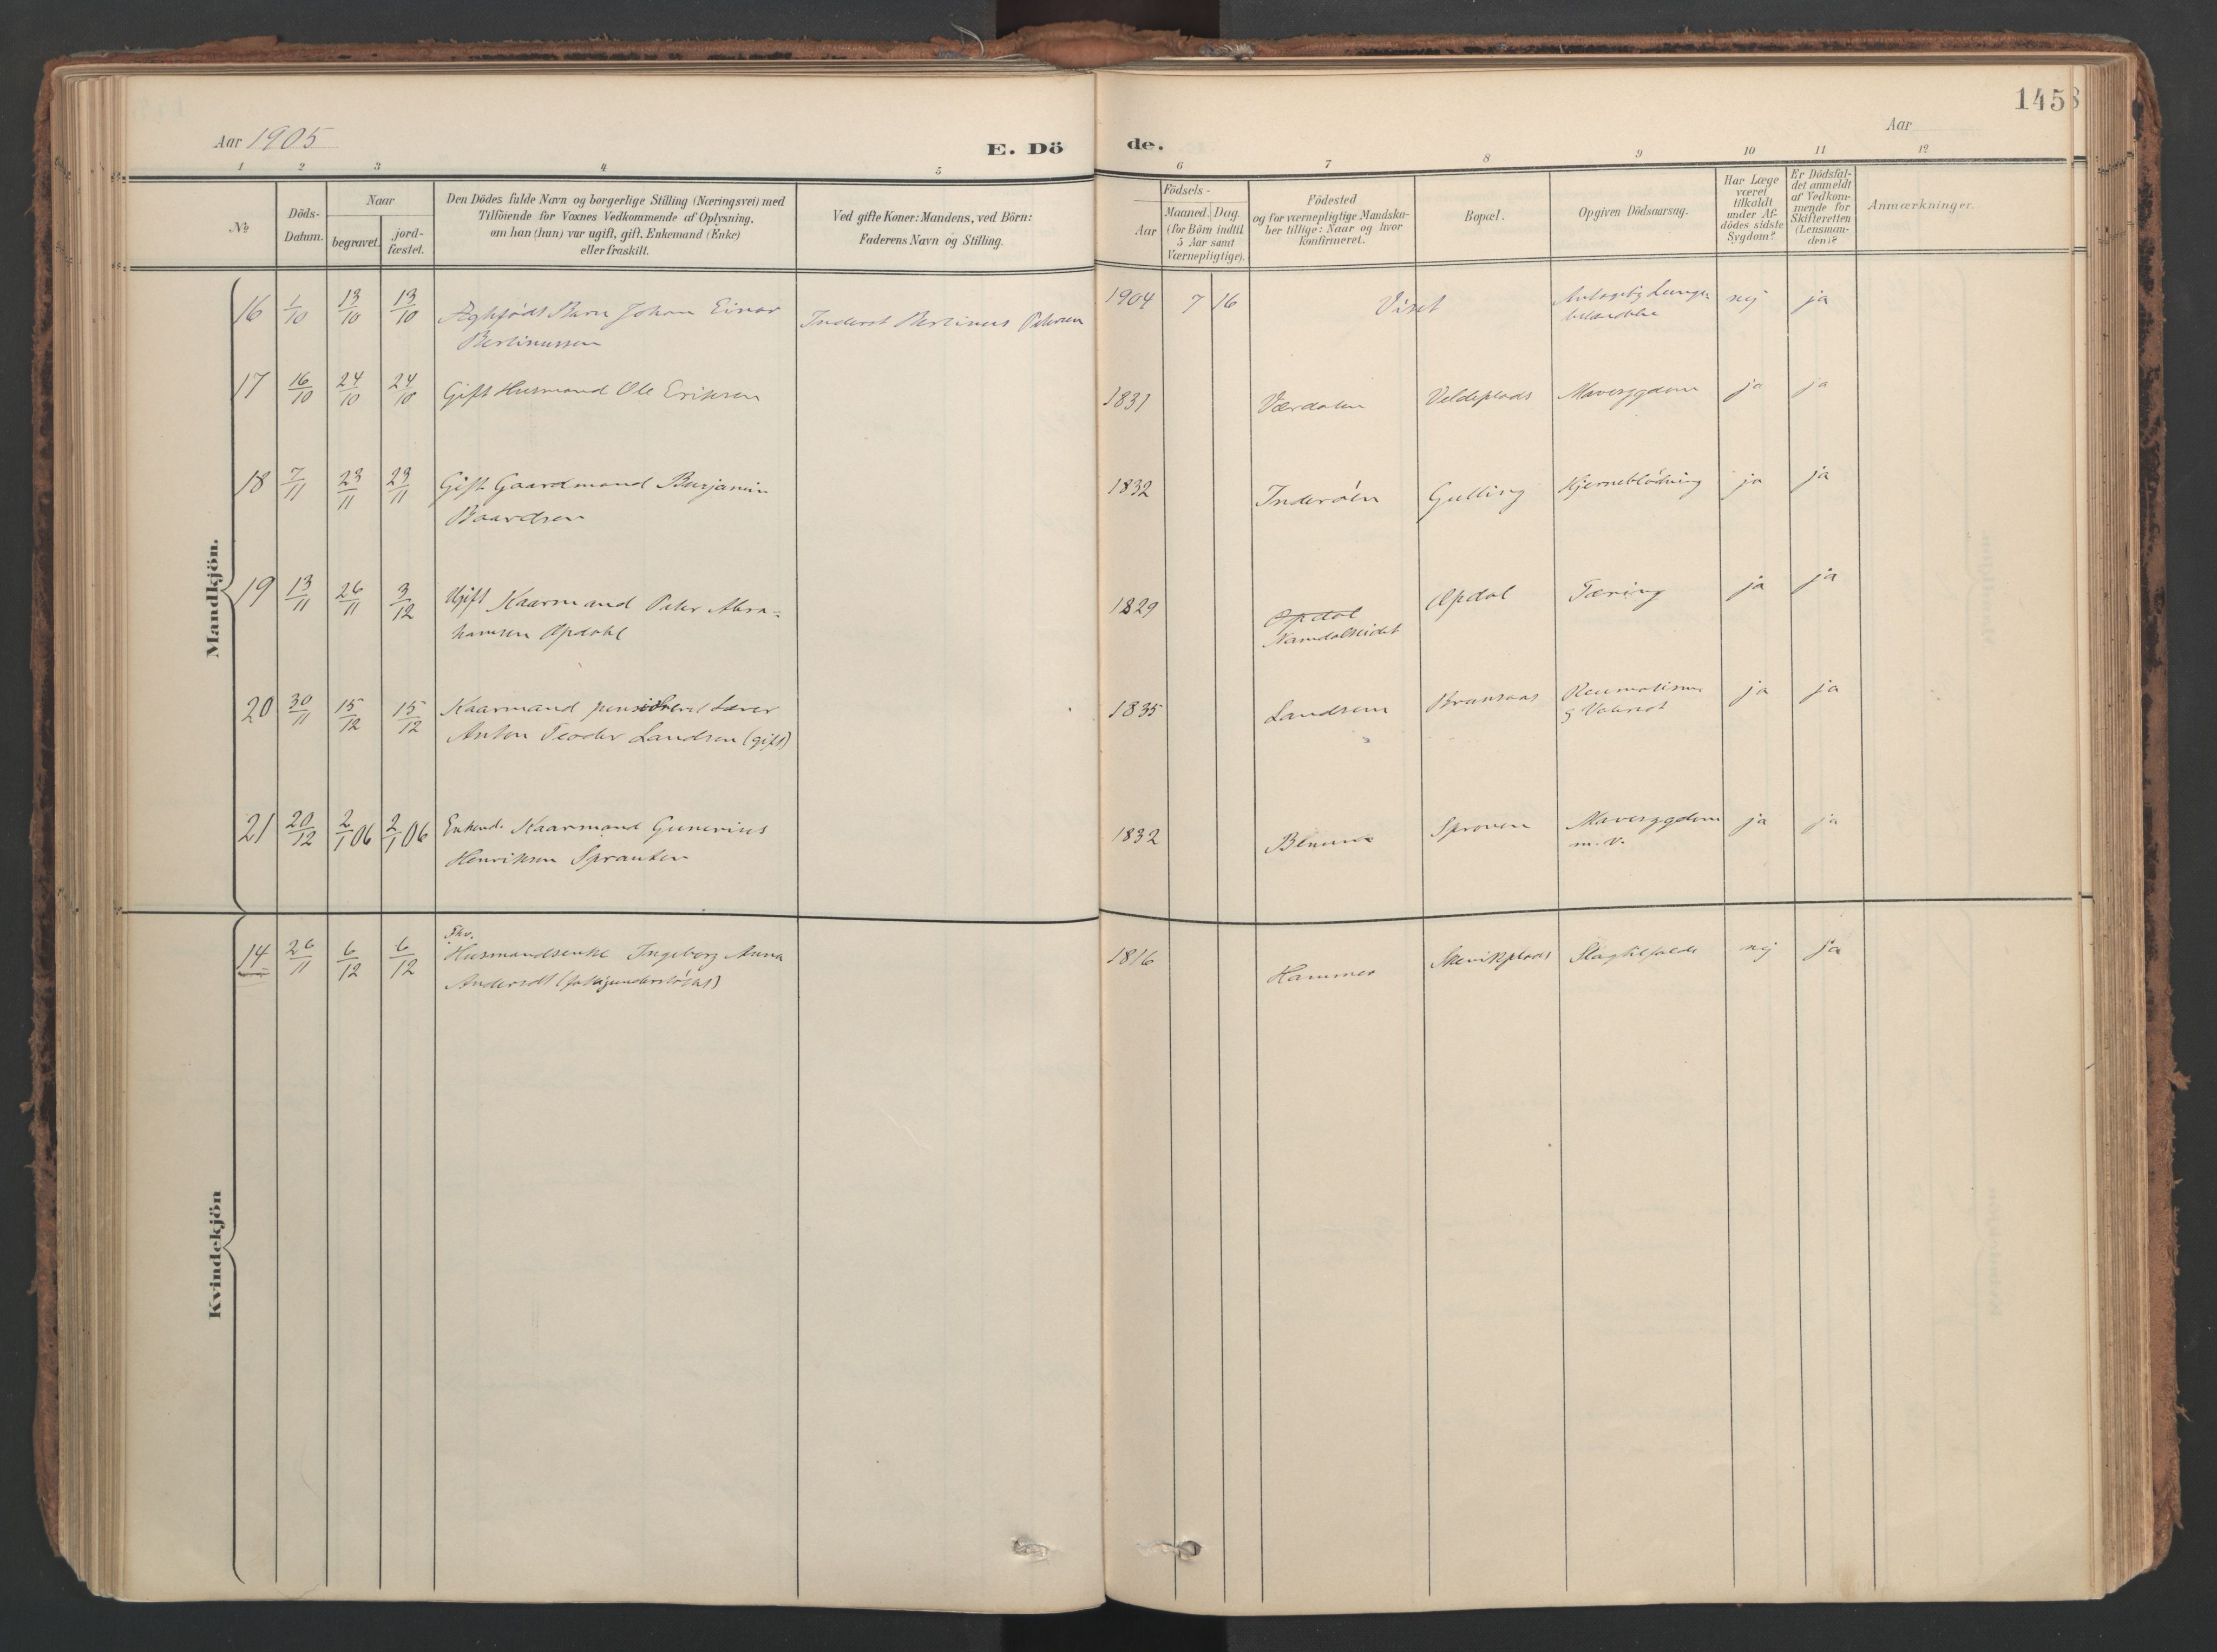 145
Aar 1905
E. Dö
de.
Aar
1 2 3 4 5 6 7 8 9 10 11 12
№
Döds-
Datum.
Naar
begravet.
jord-
fæstet.
Den Dödes fulde Navn og borgerlige Stilling (Næringsvei) med
Tilföiende for Voxnes Vedkommende af Oplysning,
om han (hun) var ugift, gift, Enkemand (Enke)
eller fraskilt.
Ved gifte Koner: Mandens, ved Börn:
Faderens Navn og Stilling.
Födsels-
Aar
Maaned. Dag.
(for Börn indtil
5 Aar samt
Værnepligtige).
Födested
og for værnepligtige Mandska-
ber tillige: Naar og hvor
konfirmeret.
Bopæl.
Opgiven Dödsaarsag.
Har Læge
været
tilkaldt
under Af-
dödes sidste
Sygdom?
Er Dödsfal-
det anmeldt
af Vedkom-
mende for
Skifteretten
(Lensman-
den)?
Anmærkninger.
Mandkjön.
16 1/10 13/10 13/10 Ægtefødt Barn Johan Einar Inderst Bertinus Petersen 1904 7 16 Viset nej ja
Bertinussen
17 16/10 24/10 24/10 Gift Husmand Ole Eriksen 1831 Værdalen Veldeplads Mavesygdom ja ja
18 7/11 23/11 23/11 Gift Gaardmand Benjamin 1832 Inderöen Gulling Hjerneblödning ja ja
Baardsen
19 13/11 26/11 3/12 Ugift Kaarmand Peter Abra=
hamsen Opdahl 1829 Opdal Opdal Tæring ja ja
Namdalseidet
20 30/11 15/12 15/12 Kaarmand pensioneret Lærer 1835 Landsem Brunsaas ja ja
Anton Teodor Landsem (gift)
21 20/12 2/1 06 2/1 06 Enkend. Kaarmand Gunerius 1832 Sproven Mavesygdom ja ja
Henriksen Sprauten m. v.
Kvindekjön
14 26/11 6/12 6/12 Fhv.
Husmandsenke Ingeborg Anna 1816 Hammer Slagtilfælde nej ja
Andersdt (fattigunderstöttet)